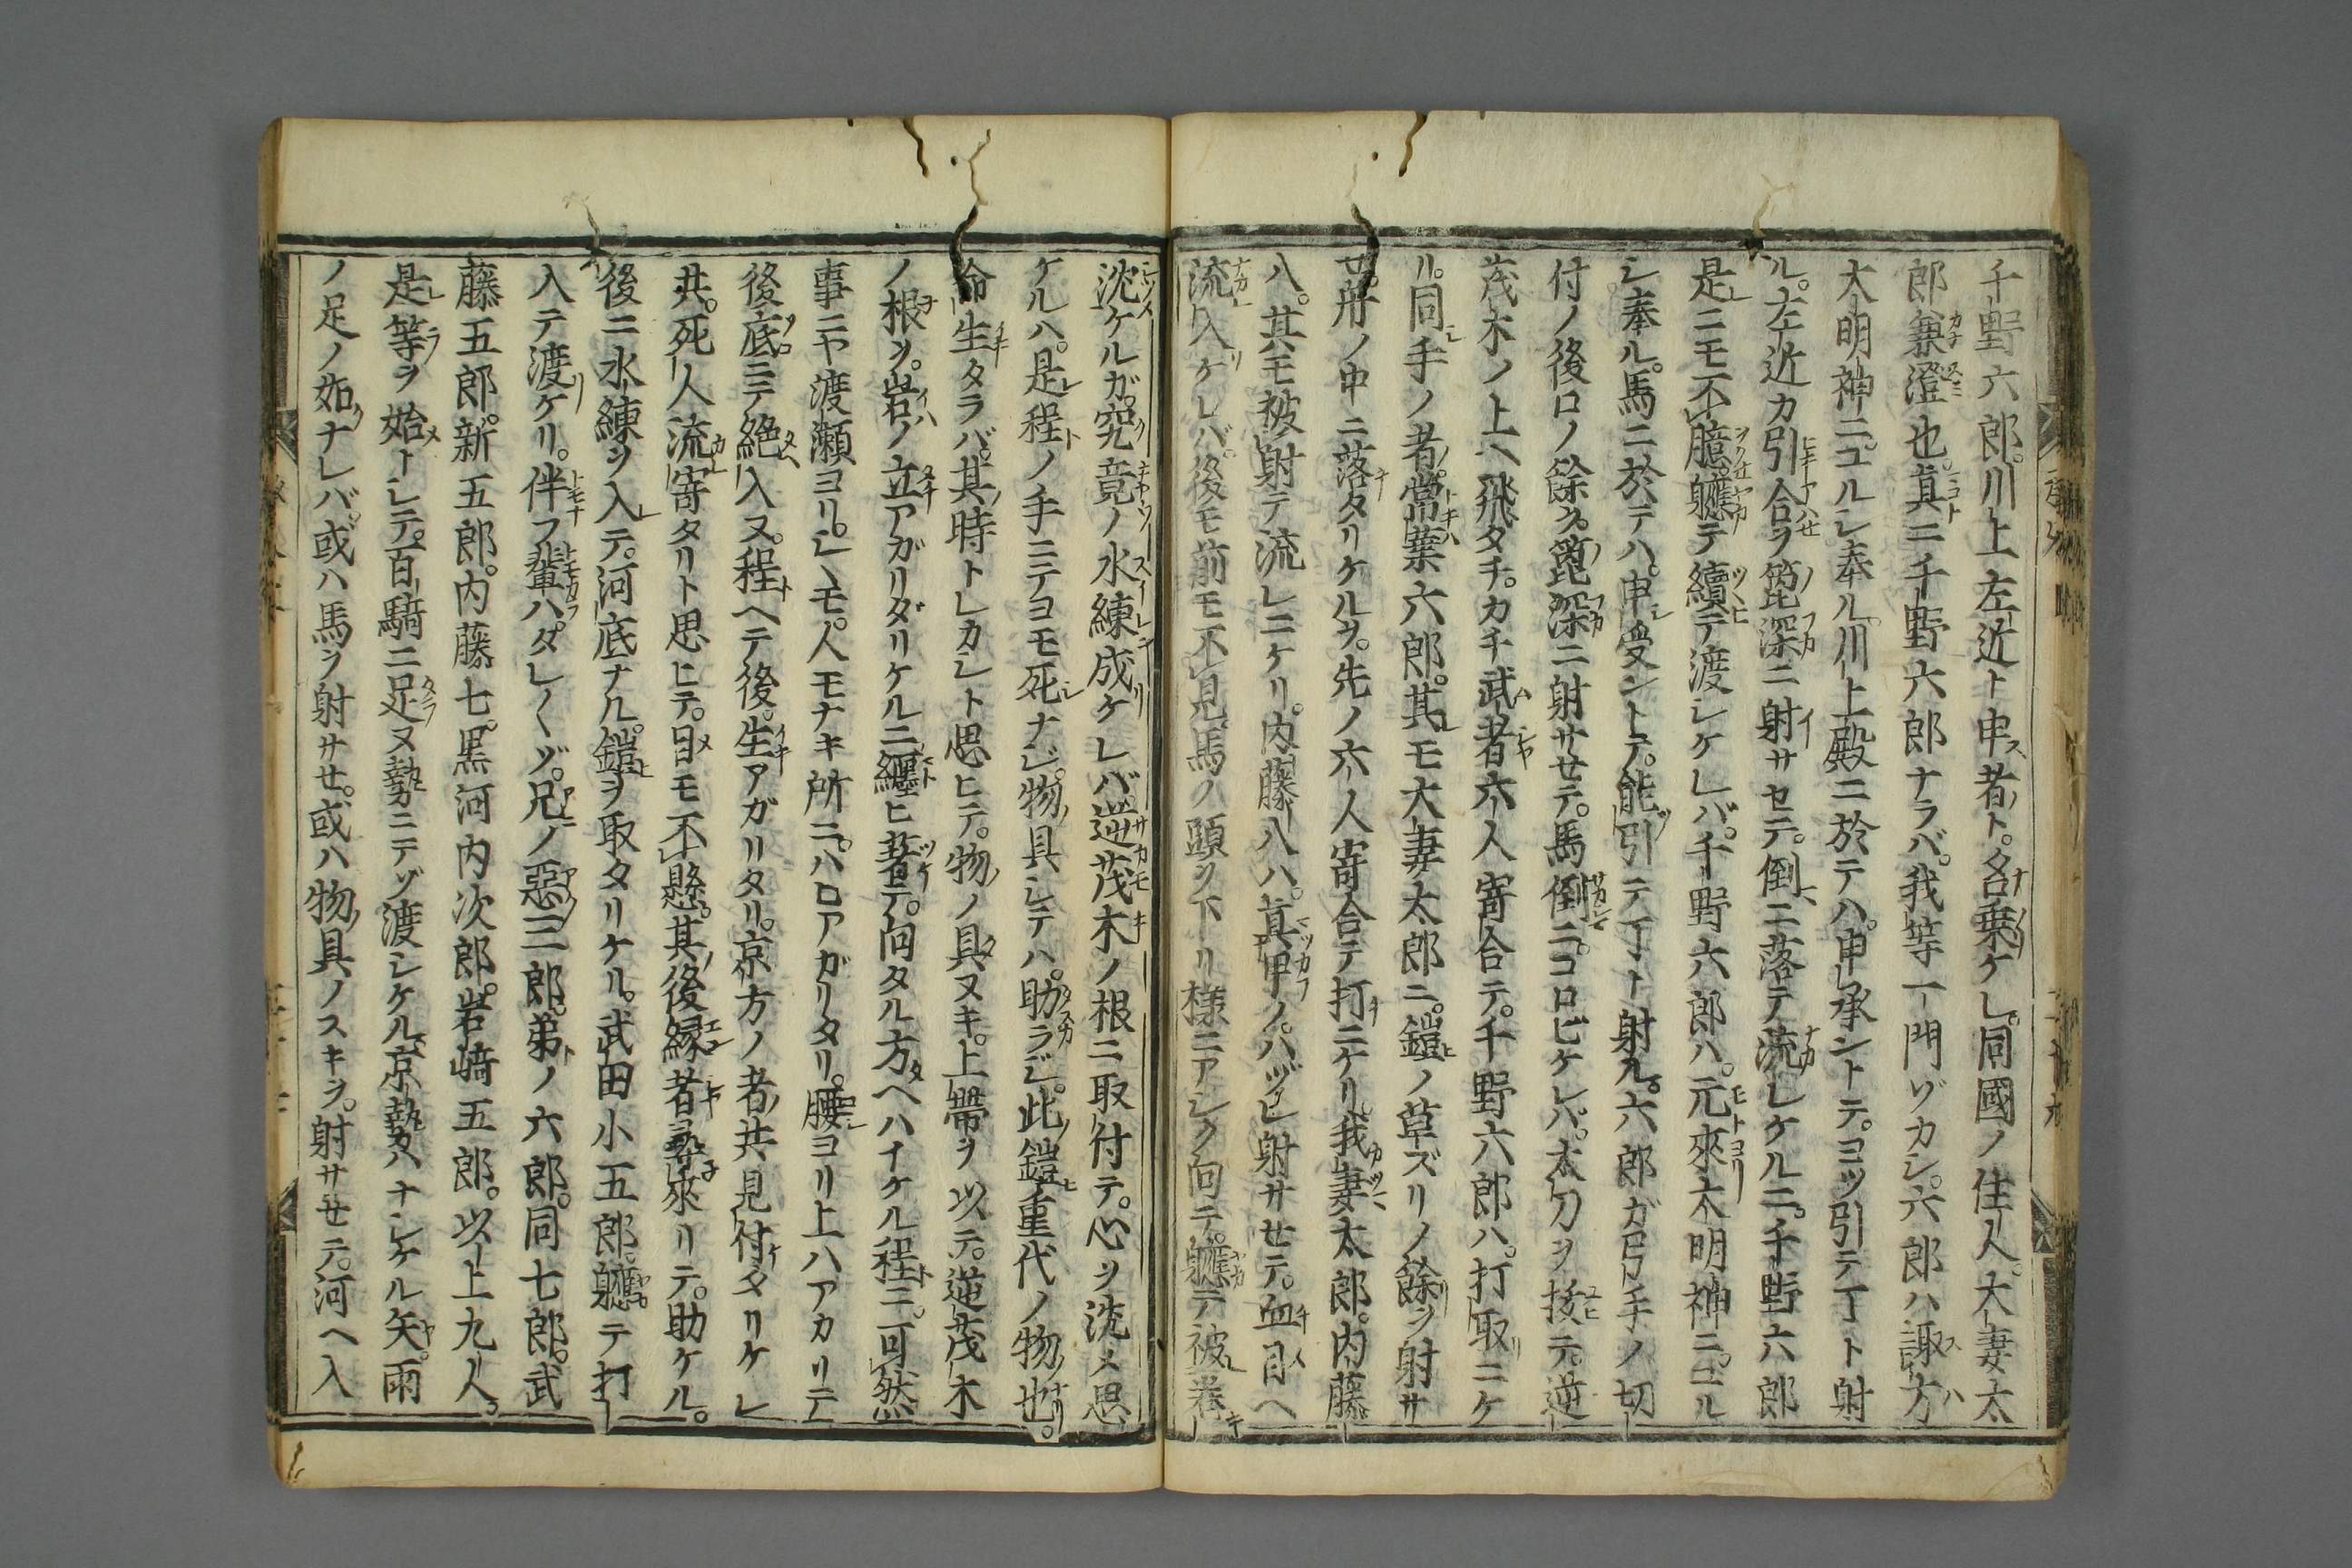 千野六郎。川上左近ト申者ト。名乗ケレ。同國ノ住人。大妻太
郎兼澄也。真ニ千野六郎ナラバ。我等一門ゾカシ。六郎ハ諏方
大明神ニユルシ奉ル。川上殿ニ於テハ。申承ントテ。ヨツ引テ丁ト射
ル。左近カ引合ヲ箆深ニ射サセテ。倒ニ落テ流レケルニ。千野六郎
是ニモ不臆軈テ續テ渡シケレバ。千野六郎ハ。元來大明神ニユル
シ奉ル。馬ニ於テハ。申受ントテ。能引テ丁ト射ル。六郎ガ弓手ノ切
付ノ後ロノ餘ヲ。箆深ニ射サセテ。馬倒ニ。コロビケレバ。太刀ヲ抜テ。逆
茂木ノ上ヘ飛タチ。カチ武者六人寄合テ。千野六郎ハ。打取ニケ
リ。同手ノ者。常葉六郎。其モ大妻太郎ニ。鎧ノ草ズリノ餘ヲ射サ
セ。舟ノ中ニ落タリケルヲ。先ノ六人寄合テ打ニケリ。我妻太郎。内藤
八。其モ被射テ流レニケリ。内藤八ハ。真甲ノ。ハヅレ射サセテ。血目ヘ
流入ケレバ。後モ前モ不見。馬ノ頭ヲ下リ様ニアシク向テ。軈テ被巻
沈ケルガ。究竟ノ水練成ケレバ逆茂木ノ根ニ取付テ。心ヲ沈メ思
ケルハ。是程ノ手ニテヨモ死ナジ。物具シテハ。助ラジ。此鎧重代ノ物也。
命生タラバ。其時トレカシト思ヒテ。物ノ具ヌキ。上帶ヲ以テ。逆茂木
ノ根ヲ。岩ノ立アガリダリケルニ纒ヒ著テ。向タル方ヘハイケル程ニ。可然
事ニヤ渡瀬ヨリ。シ〱モ。人モナキ所ニ。ハロアガリタリ。腰ヨリ上ハアカリテ
後底ニテ絶入ヌ。程ヘテ後。生アガリタリ。京方ノ者共見付タリケレ
共。死人流寄タリト思ヒテ。目モ不懸。其後縁者尋來リテ。助ケル。
後ニ水練ヲ入テ。河底ナル。鎧ヲ取タリケル。武田小五郎。軈テ打
入テ渡ケリ。伴フ輩ハ。タレ〱ゾ。兄ノ惡三郎。弟ノ六郎。同七郎。武
藤五郎。新五郎。内藤七。黒河内次郎。岩崎五郎。以上九人。
是等ヲ始トシテ。百騎ニ足ヌ勢ニテゾ渡シケル。京勢ハナシケル矢。雨
ノ足ノ如ナレバ。或ハ馬ヲ射サセ。或ハ物具ノスキヲ。射サセテ。河ヘ入